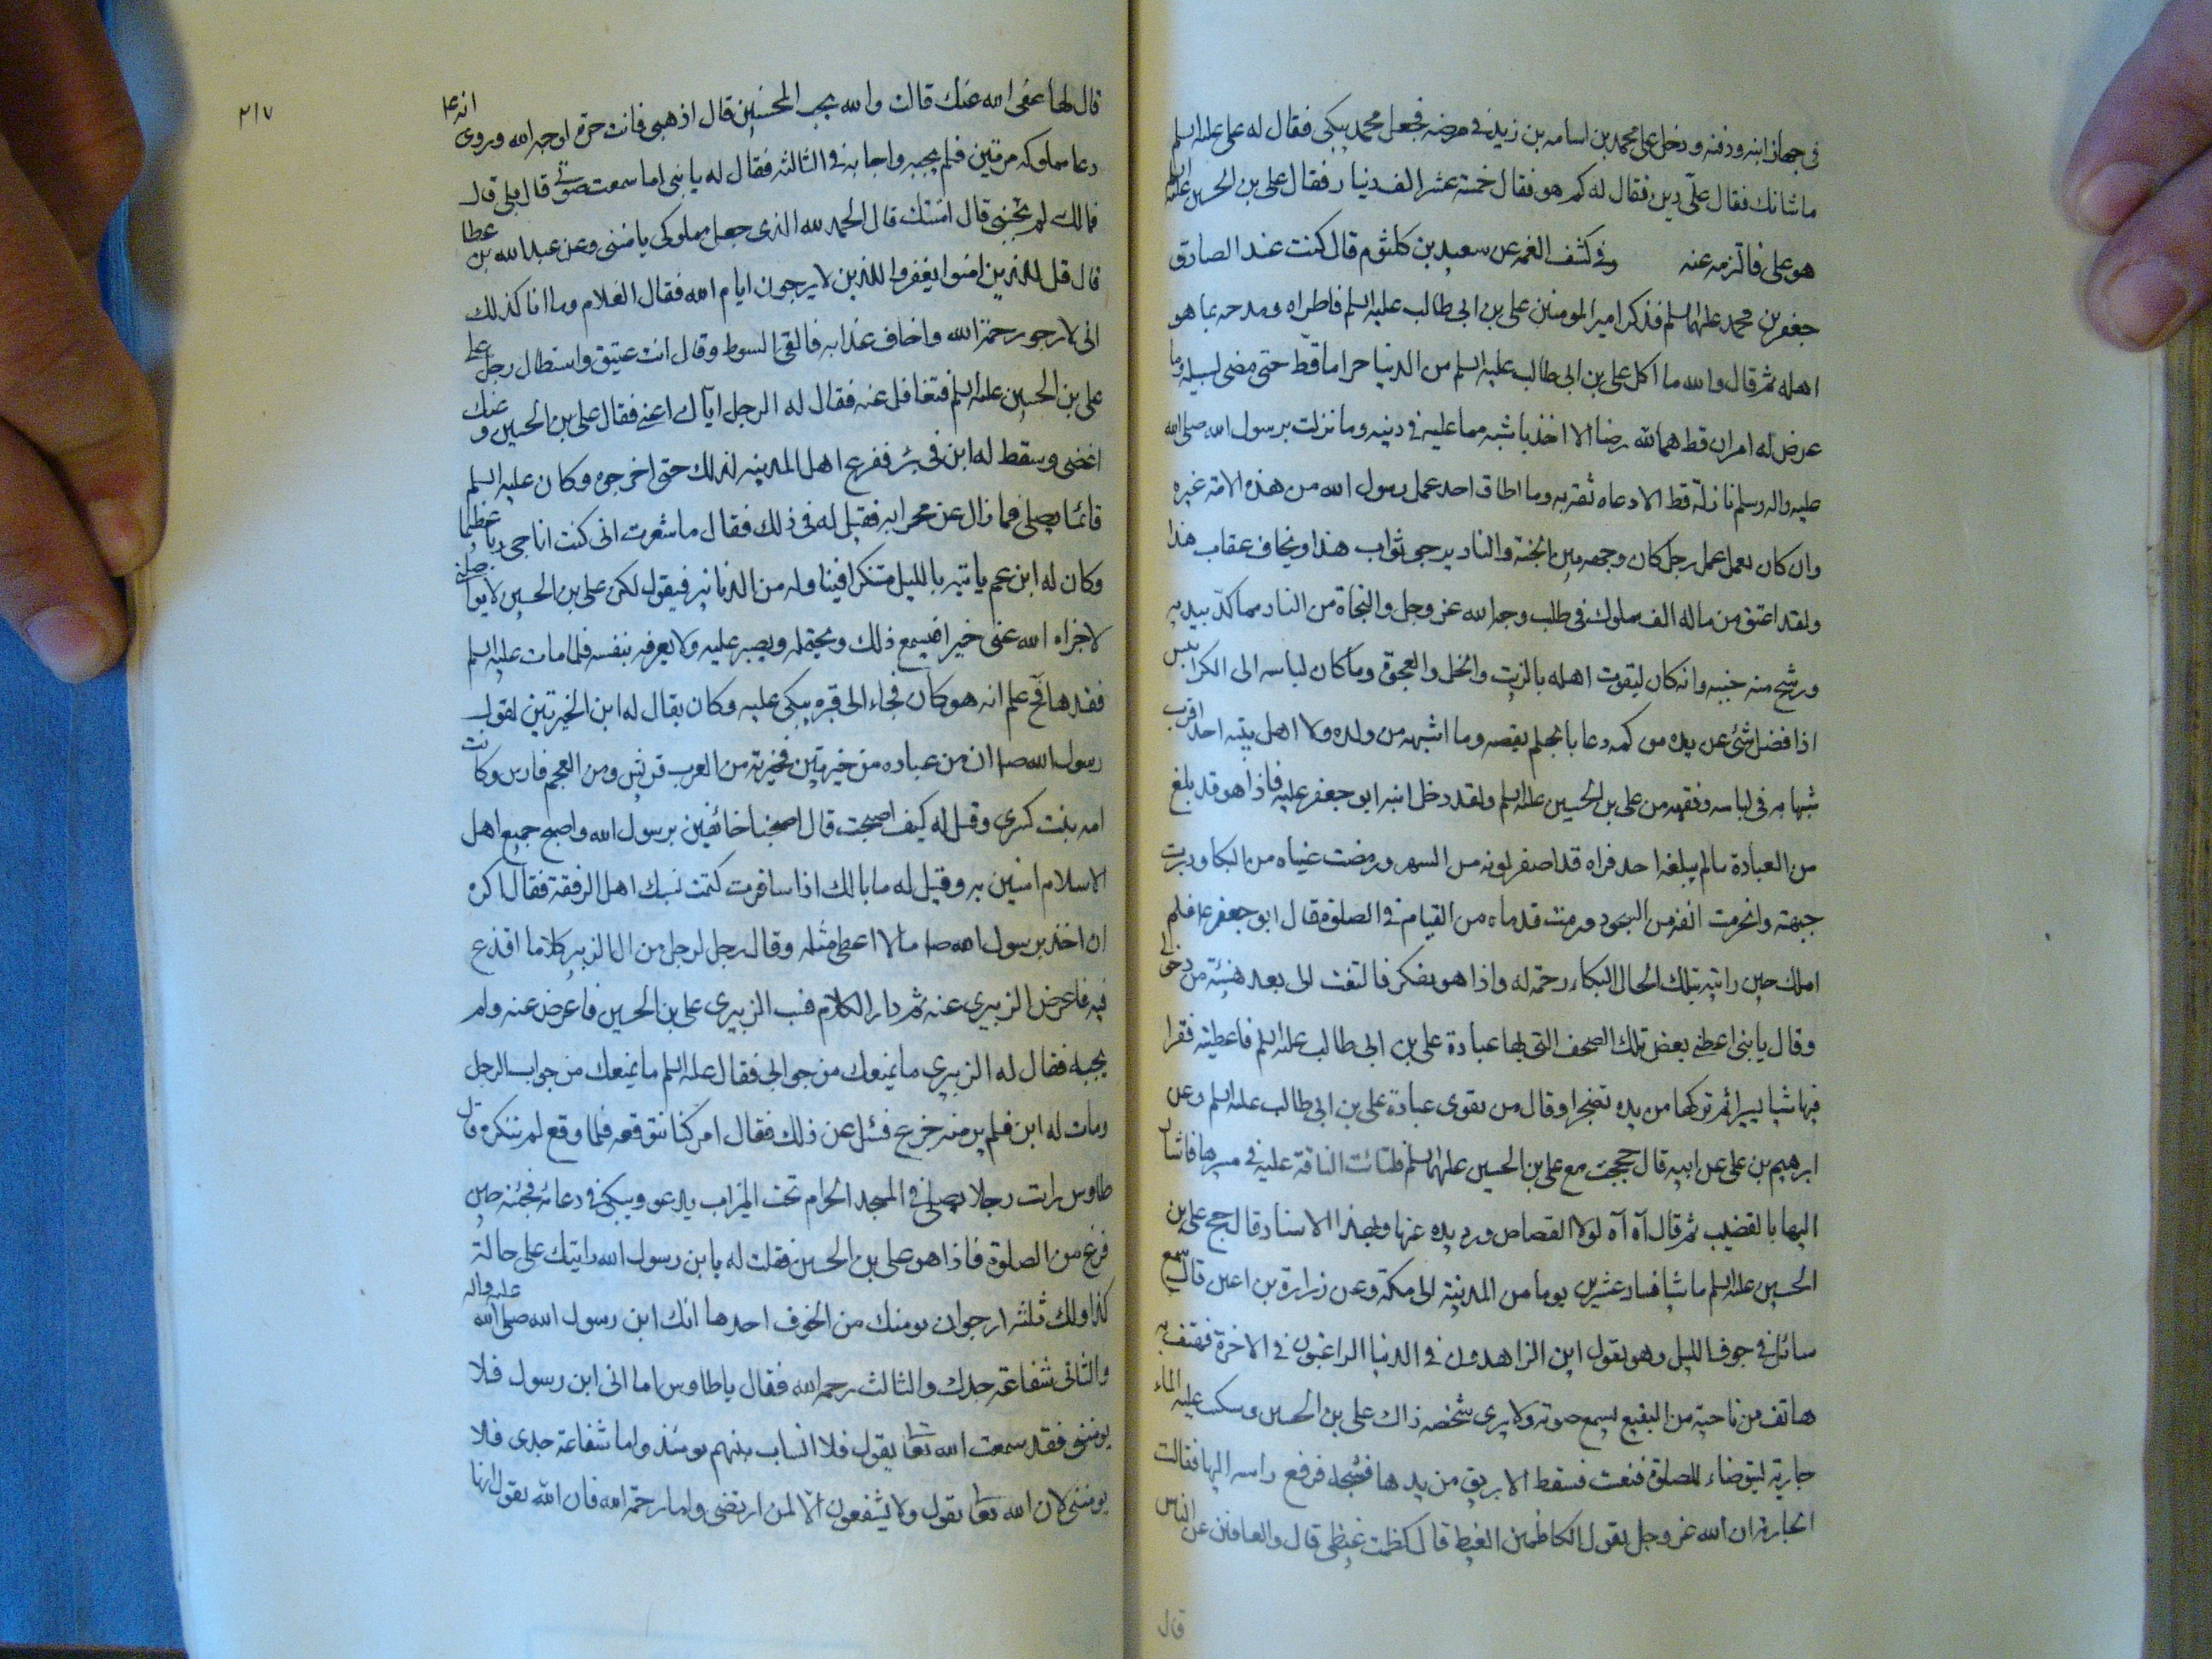 فى جهاز ابنه ودفنه ودخل على محمد بن اسامه بن زيد فى مرضه فجعل محمد يبكى فقال له على عليه السلم
ما شانك فقال علىّ دين فقال له كم هو فقال خمسة عشر الف دينار فقال على بن الحسين عليه السلم
هو على فالتزمه عنه وفى كشف الغمه عن سعيد بن كلثوم قال كنت عند الصادق
جعفر بن محمد عليهما السلم فذكر امير المومنين على بن ابى طالب عليه السلم فاطراه ومدحه بما هو
اهله ثم قال والله ما اكل على بن ابى طالب عليه السلم من الدنيا حراما قط حتى مضى لسبيله وما
عرض له امران قط هما لله رضا الا اخذ باشبه مما عليه فى دينه وما نزلت برسول الله صلى الله
عليه واله وسلم نازلة قط الا دعاه ثقة به وما اطاق احد عمل رسول الله من هذه الامة غيره
وان كان ليعمل عمل رجل كان وجهه بين الجنة والنار يرجو ثواب هذا ويخاف عقاب هذا
ولقد اعتق من ماله الف مملوك فى طلب وجه الله عز وجل والنجاة من النار مما كدّ بيديه
ورشح منه جبينه وانه كان ليقوت اهله بالزيت والخل والعجوة وما كان لباسه الى الكرابيس
اذا فضل شئ عن يده من كمه دعا بالجلم فقصه وما اشبهه من ولده ولا اهل بيته احد اقرب
شبها به فى لباسه وفقهه من على بن الحسين عليه السلم ولقد دخل ابنه ابو جعفر عليه فاذا هو قد بلغ
من العبادة ما لم يبلغه احد فراه قد اصفر لونه من السهر ورمضت عيناه من البكا ودبرت
جبهته وانخرمت انفه من السجود وورمت قدماه من القيام فى الصلوة فقال ابو جعفر ع فلم
املك حين رايته بتلك الحال البكاء رحمة له واذا هو يفكر فالتفت الى بعد هنيئة من دخولى
وقال يا بنى اعطنى بعض تلك الصحف التى بها عبادة على بن ابى طالب عليه السلم فاعطيته فقرا
فيها شيا يسيرا ثم تركها من يده تضجرا وقال من يقوى عبادة على بن ابى طالب عليه السلم وعن
ابرهيم بن على عن ابيه قال حججت مع على بن الحسين عليهما السلم فلتاثت الناقة عليه فى سيرها فاشار
اليها بالقضيب ثم قال آه آه لولا القصاص ورد يده عنها وبهذا الاسناد قال حج على بن
الحسين عليه السلم ماشيا فسار عشرين يوما من المدينة الى مكة وعن زرارة بن اعين قال سمع
سائل فى جوف الليل وهو يقول اين الزاهدون فى الدنيا الراغبون فى الاخرة فهتف به
هاتف من ناحية من البقيع يسمع صوته ولا يرى شخصه ذاك على بن الحسين وسكبت عليه الماء
جارية ليتوضاء للصلوة فنعست فسقط الابريق من يدها فشجه فرفع راسه اليها فقالت
الجارية ان الله عز وجل يقول الكاظمين الغيظ قال كظمت غيظى قال والعافين عن الناس
قال
٢١٧
قال لها عفى الله عنك قالت والله يحب المحسنين قال اذهبى فانت حرة لوجه الله وروى انه ع
دعا مملوكه مرتين فلم يجبه واجابه فى الثالثه فقال له يا بنى اما سمعت صوتى قال بلى قال
فمالك لم تجبنى قال امنتك قال الحمد لله الذى جعل مملوكى يامننى وعن عبد الله بن عطا
قال قل للذين امنوا يغفروا للذين لا يرجون ايام الله فقال الغلام وما انا كذلك
انى لارجو رحمة الله واخاف عذابه فالقى السوط وقال انت عتيق واستطال رجل على
على بن الحسين عليه السلم فتغافل عنه فقال له الرجل اياك اعنى فقال على بن الحسين وعنك
اغضى وسقط له ابن فى بئر ففزع اهل المدينه لذلك حتى اخرجوه وكان عليه السلم
قائما يصلى فما زال عن محرابه فقيل له فى ذلك فقال ما شعرت انى كنت اناجى ربا عظيما
وكان له ابن عم ياتيه بالليل متنكرا فيناوله من الدنانير فيقول لكن على بن الحسين لا يواصلنى
لا جزاه الله عنى خيرا فيسمع ذلك ويحتمله ويصبر عليه ولا يعرفه بنفسه فلما مات عليه السلم
فقدها فح علم انه هو كان فجاء الى قبره يبكى عليه وكان يقال له ابن الخيرتين لقول
رسول الله ص ان من عباده من خيرتين فخيرته من العرب قريش ومن العجم فارس وكانت
امه بنت كسرى وقيل له كيف اصبحت قال اصبحنا خائفين برسول الله واصبح جميع اهل
الاسلام امنين به وقيل له ما بالك اذا سافرت كتمت نسبك اهل الرفقة فقال اكره
ان اخذ برسول الله ص ما لا اعطى مثله وقال رجل لرجل من ال الزبير كلاما اقذع
فيه فاعرض الزبيرى عنه ثم دار الكلام فسب الزبيرى على بن الحسين فاعرض عنه ولم
يجبه فقال له الزبيرى ما يمنعك من جوابى فقال عليه السلم ما يمنعك من جواب الرجل
ومات له ابن فلم ير منه جزع فسئل عن ذلك فقال امر كنا نتوقعه فلما وقع لم ننكره قال
طاوس رايت رجلا يصلى فى المسجد الحرام تحت الميزاب يدعو ويبكى فى دعائه فجئته حين
فرغ من الصلوة فاذا هو على بن الحسين فقلت له يا بن رسول الله رايتك على حالة
كذا ولك ثلثه ارجو ان يومنك من الخوف احدها انك ابن رسول الله صلى الله عليه واله
والثانى شفاعة جدك والثالث رحمه الله فقال يا طاوس اما انى ابن رسول فلا
يومننى فقد سمعت الله تعا يقول فلا انساب بينهم يومئذ واما شفاعة جدى فلا
يومننى لان الله تعا يقول ولا يشفعون الا لمن ارتضى واما رحمة الله فان الله يقول انها